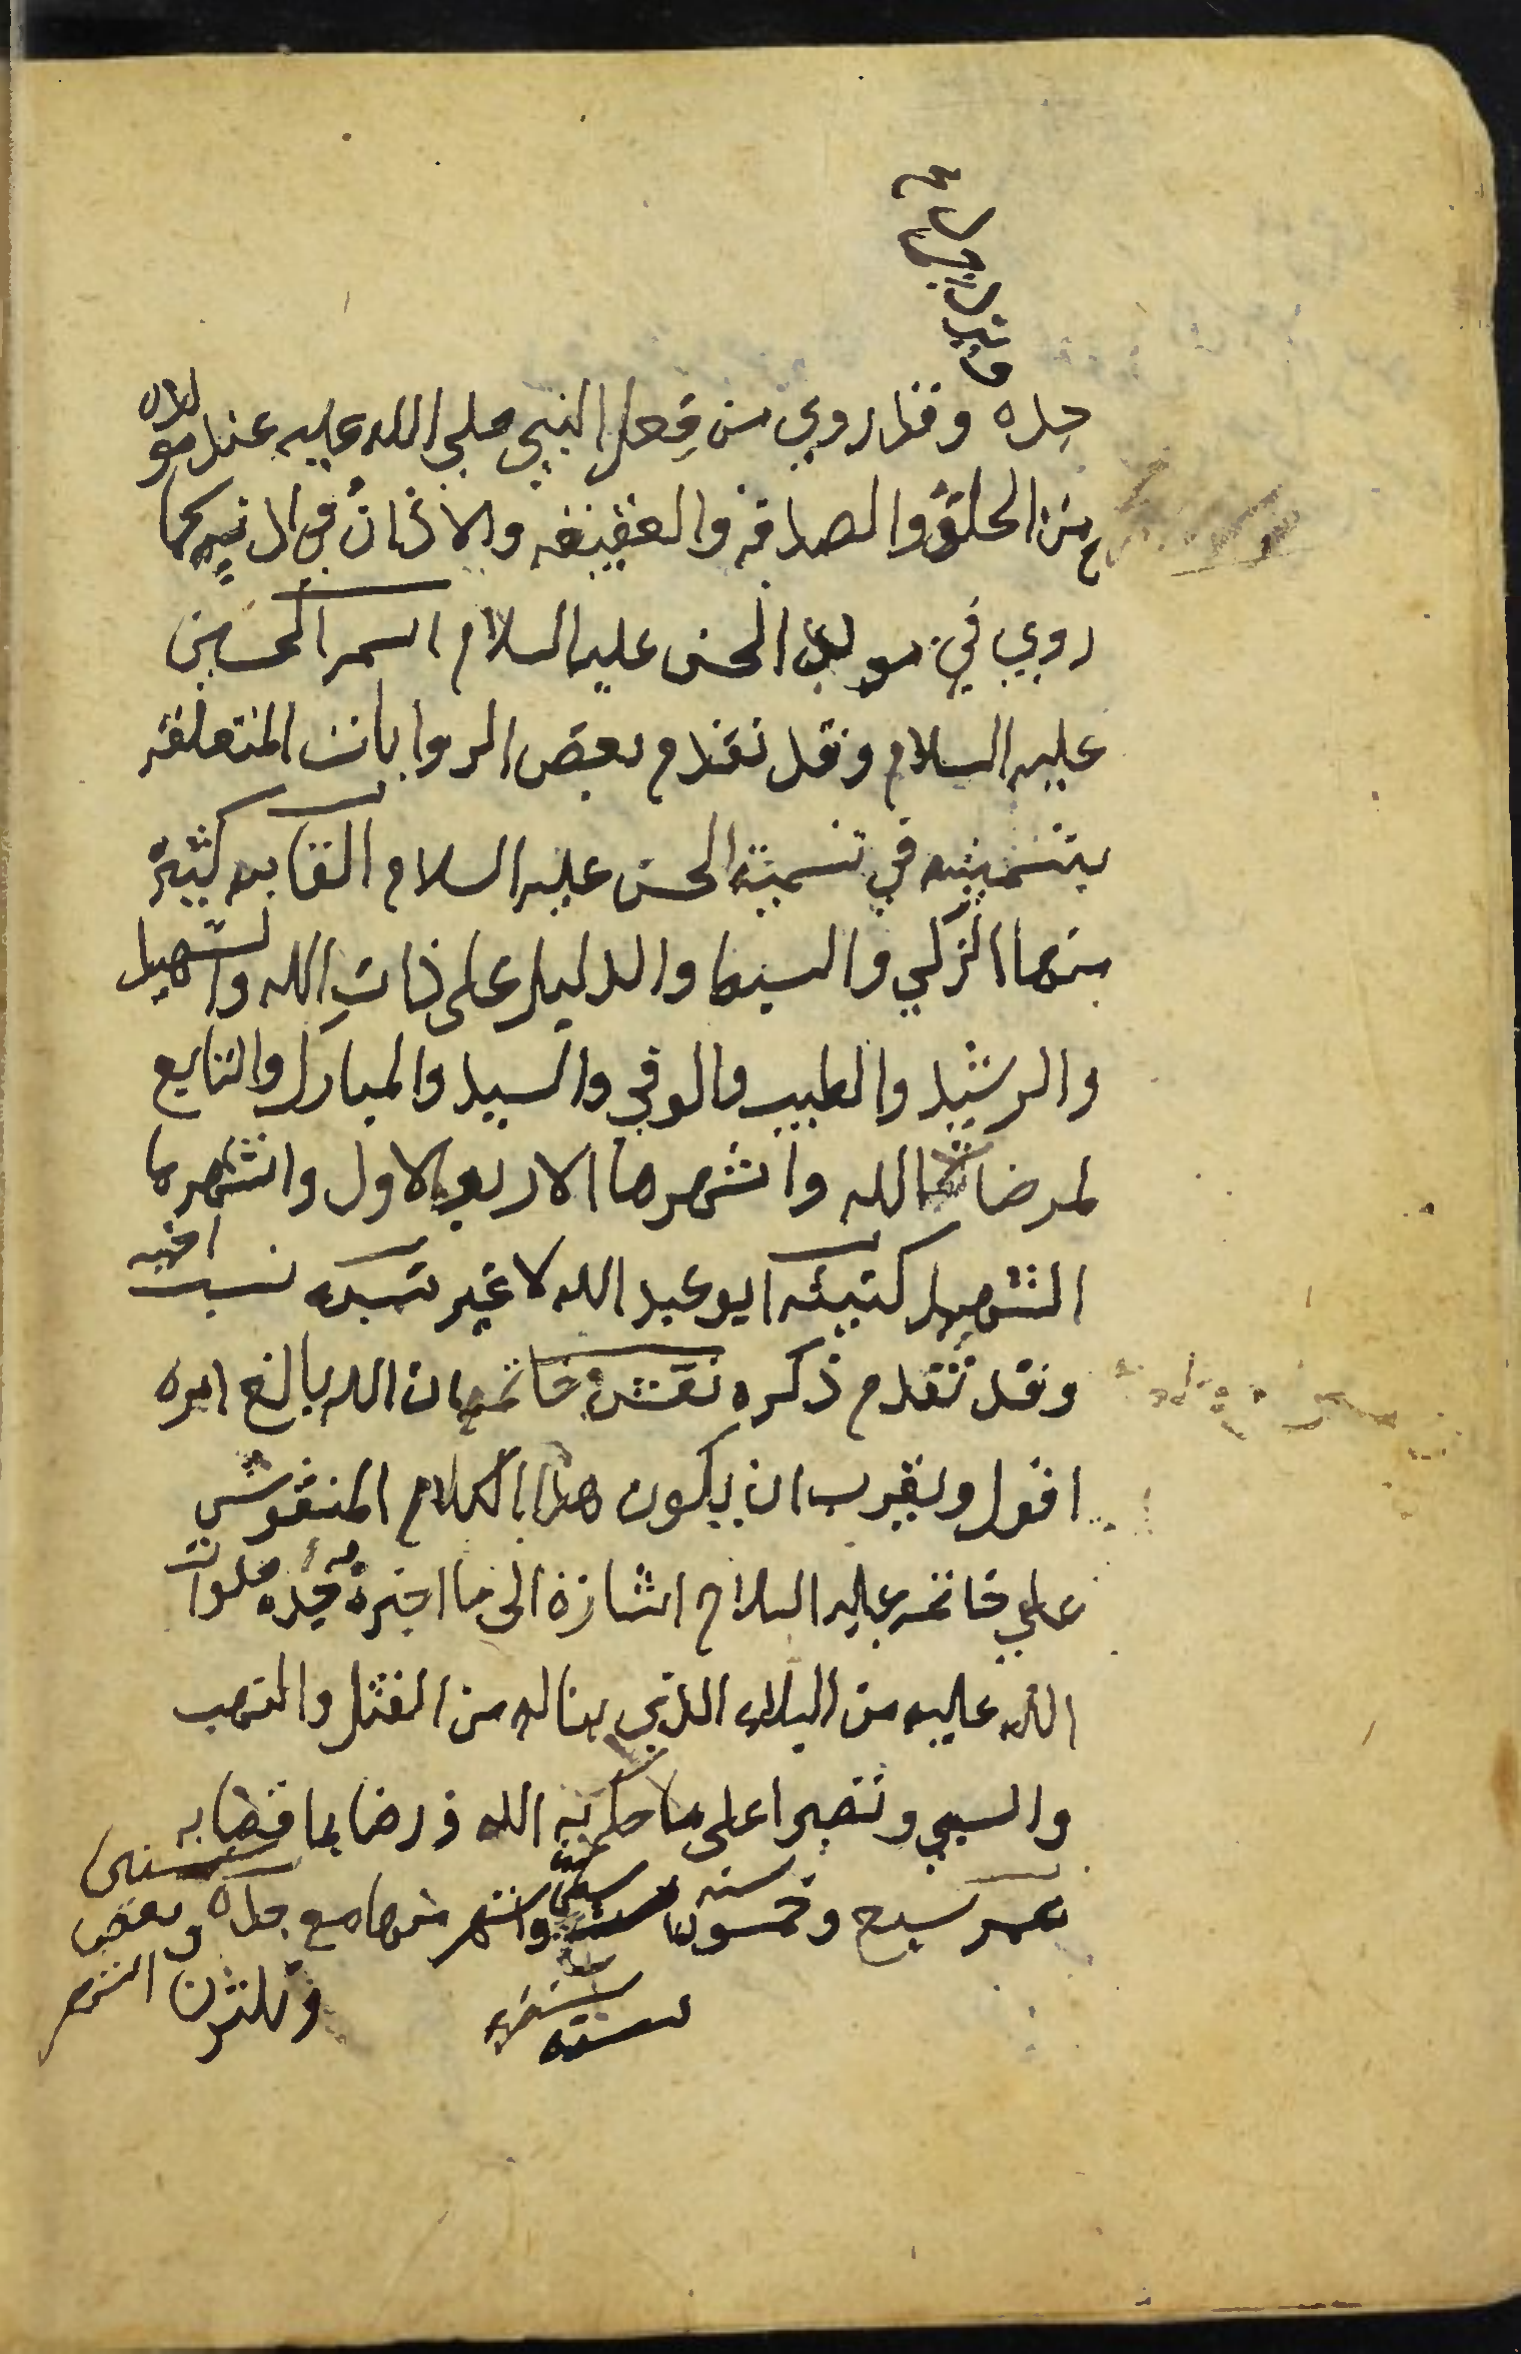 جده وقد روي من فعل النبي صلى الله عليه عند مولده
من الحلق والصدقه والعقيقه والاذان في اذنيه كما
روي في مولد الحسن عليه السلام اسم الحسين
عليه السلام وقد تقدم بعض الروايات المتعلقه
بتسميته في تسمية الحسن عليه السلام القابه كثيرة
منها الزكي والسبط والدليل على ذات الله والشهيد
والرشيد والطيب والوفي والسيد والمبارك والتابع
لمرضات الله واشهرها الاربع الاول واشهرها
الشهيد كنيته ابو عبد الله لا غير نسبه نسب اخيه
وقد تقدم ذكره نقش خاتمه ان الله بالغ امره
اقول ويقرب ان يكون هذا الكلام المنقوش
على خاتمه عليه السلام اشارة الى ما اخبره به جده صلوات
الله عليه من البلاء الذي يناله من القتل والنهب
والسبي وتصبرا على ما حكم به الله ورضا بما قضا به
عمره سبع وخمسون سنه واشهر منها مع جده
سنين وبعض
وثلثون
الشهر
سنة